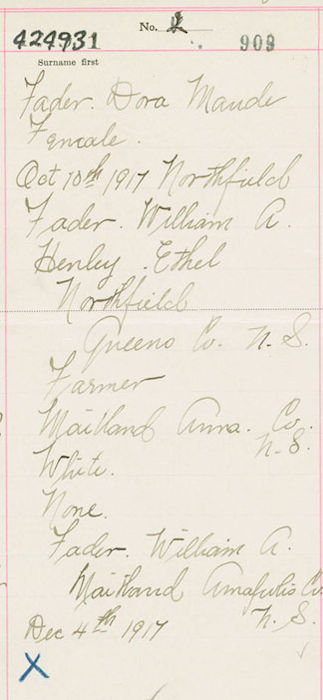 No. 2
424931
909
Surname first
Fader. Dora Maude
Female.
Oct 10th 1917 Northfield
Fader. William A.
Henley. Ethel
Northfield
Queens Co. N. S.
Farmer
Maitland Anna. Co.
N. S.
White.
None.
Fader. William A.
Maitland Annapolis Co.
N. S.
Dec 4th 1917
X